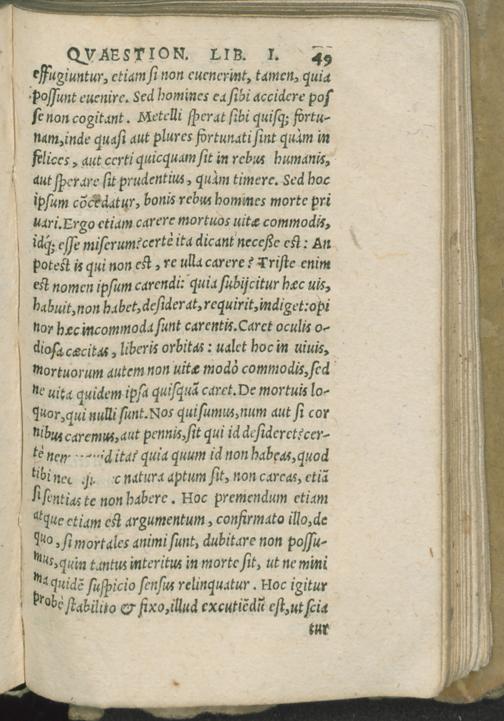 QVAESTION. LIB. I. 49
effugiuntur, etiam si non euenerint, tamen, quia
possunt euenire. Sed homines ea sibi accidere pos
se non cogitant. Metelli sperat sibi quisq; fortu-
nam, inde quasi aut plures fortunati sint quàm in
felices, aut certi quicquam sit in rebus humanis,
aut sperare sit prudentius, quàm timere. Sed hoc
ipsum cōcedatur, bonis rebus homines morte pri
uari. Ergo etiam carere mortuos uitæ commodis,
idq́; esse miserum? certè ita dicant necesse est: An
potest is qui non est, re ulla carere? Triste enim
est nomen ipsum carendi: quia subijcitur hæc uis,
habuit, non habet, desiderat, requirit, indiget: opi
nor hæc incommoda sunt carentis. Caret oculis o-
diosa cæcitas, liberis orbitas: ualet hoc in uiuis,
mortuorum autem non uitæ modò commodis, sed
ne uita quidem ipsa quisquā caret. De mortuis lo-
quor, qui nulli sunt. Nos qui sumus, num aut si cor
nibus caremus, aut pennis, sit qui id desideret? cer-
tè nem id ita? quia quum id non habeas, quod
tibi nec natura aptum sit, non careas, etiā
si sentias te non habere. Hoc premendum etiam
atque etiam est argumentum, confirmato illo, de
quo, si mortales animi sunt, dubitare non possu-
mus, quin tantus interitus in morte sit, ut ne mini
ma quidē suspicio sensus relinquatur. Hoc igitur
probè stabilito & fixo, illud excutiēdū est, ut scia
tur